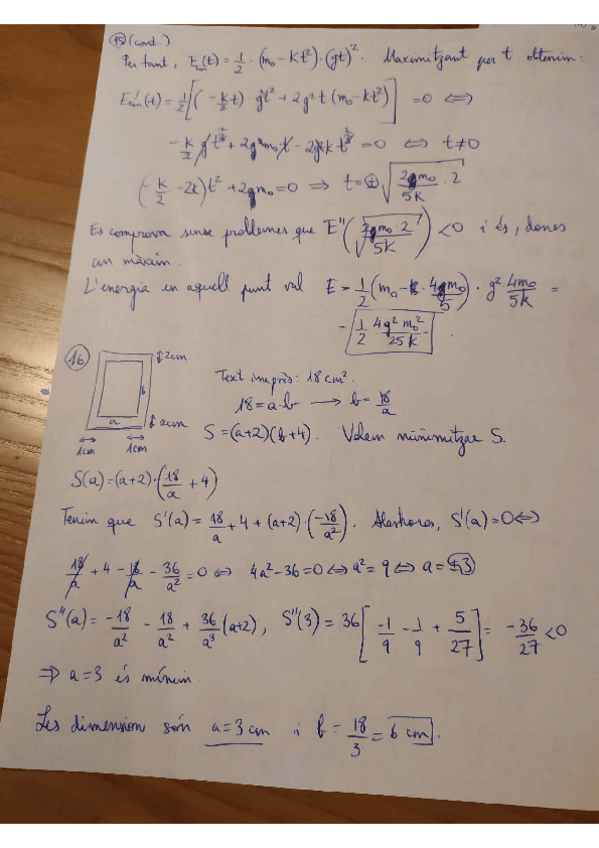 15 (cont.)
Per tant, E_cin(t) = 1/2 · (m₀ - kt²) · (gt)². Maximitzant per t obtenim:
E'_cin(t) = 1/2 [(-k/2 t) · g²t² + 2g²t (m₀ - kt²)] = 0 ⇔
-k/2 g²t³ + 2g²m₀t - 2g²kt³ = 0 ⇔ t≠0
(-k/2 - 2k)t² + 2gm₀ = 0 ⇒ t = ⊕√(2gm₀ · 2 / 5k)
Es comprova sense problemes que E''(√(2gm₀ · 2 / 5k)) < 0 i és, doncs
un màxim.
L'energia en aquell punt val E = 1/2 (m₀ - k · 4gm₀/5) · g² 4m₀/5k =
= 1/2 4g²m₀²/25k.
16
2cm
b
a
2cm
1cm 1cm
Text imprès: 18 cm².
18 = a·b → b = 18/a
S = (a+2)(b+4). Volem minimitzar S.
S(a) = (a+2) · (18/a + 4)
Tenim que S'(a) = 18/a + 4 + (a+2) · (-18/a²). Aleshores, S'(a) = 0 ⇔
18/a + 4 - 18/a - 36/a² = 0 ⇔ 4a² - 36 = 0 ⇔ a² = 9 ⇔ a = ±3
S''(a) = -18/a² - 18/a² + 36/a³ (a+2), S''(3) = 36 [-1/9 - 1/9 + 5/27] = -36/27 < 0
⇒ a = 3 és mínim.
Les dimension són a = 3 cm i b = 18/3 = 6 cm.